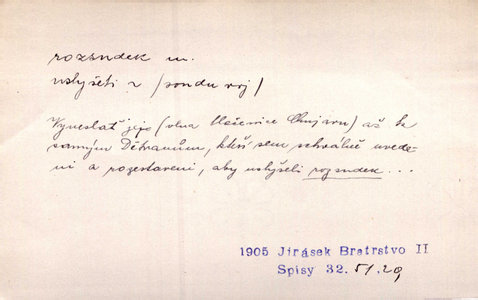 rozsudek m.
uslyšeti r /soudu voj/
Vyneslať jejo (vlna Mašenice Chujaru) až k
samým Dětvanům, kteří sem schválně uvede-
ni a rozestaveni, aby uslyšeli rozsudek ...
1905 Jirásek Bratrstvo II
Spisy 32. 51.29